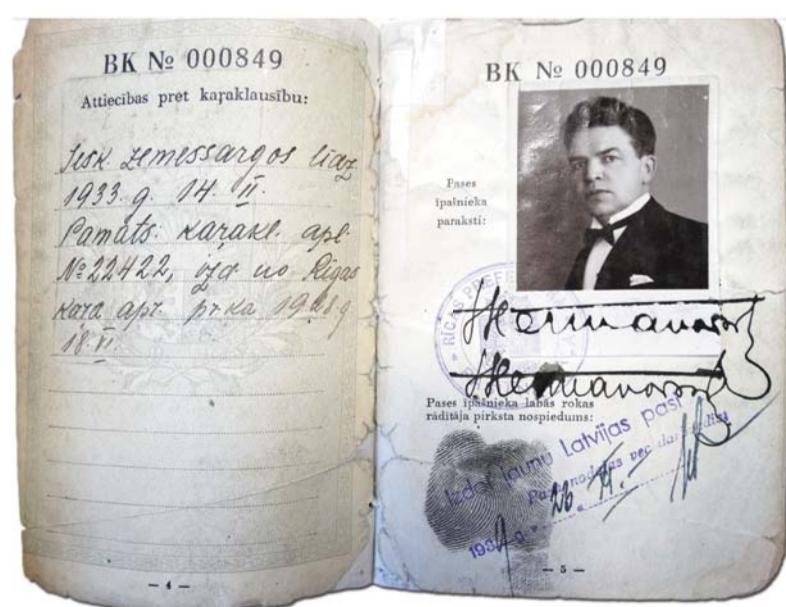 BK № 000849
Attiecības pret kaŗaklausību:
Iesk. zemessargos līdz
1933. g. 14. II.
Pamats: kaŗakl. apl.
№ 22422, izd no Rīgas
kaŗa apr. pr-ka 1928. g
18. VI.
— 4 —
BK № 000849
Pases
īpašnieka
paraksti:
RĪGAS PREFE
Pases īpašnieka labās rokas
rādītāja pirksta nospiedums:
Izdot jaunu Latvijas pasi
Pasu nodaļas vec. darbvedis
193 g. " 26. "
— 5 —